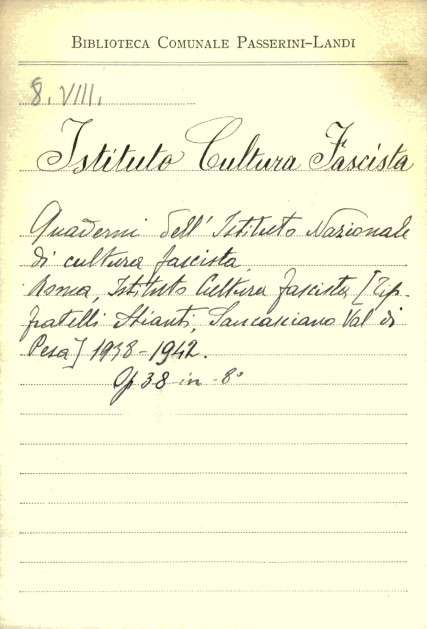 BIBLIOTECA COMUNALE PASSERINI-LANDI
8. VIII.
Istituto Cultura Fascista
Quaderni dell'Istituto Nazionale
di cultura fascista
Roma, Istituto Cultura fascista [Tip.
fratelli Stianti, Sancasciano Val di
Pesa] 1938-1942.
38 in-8°